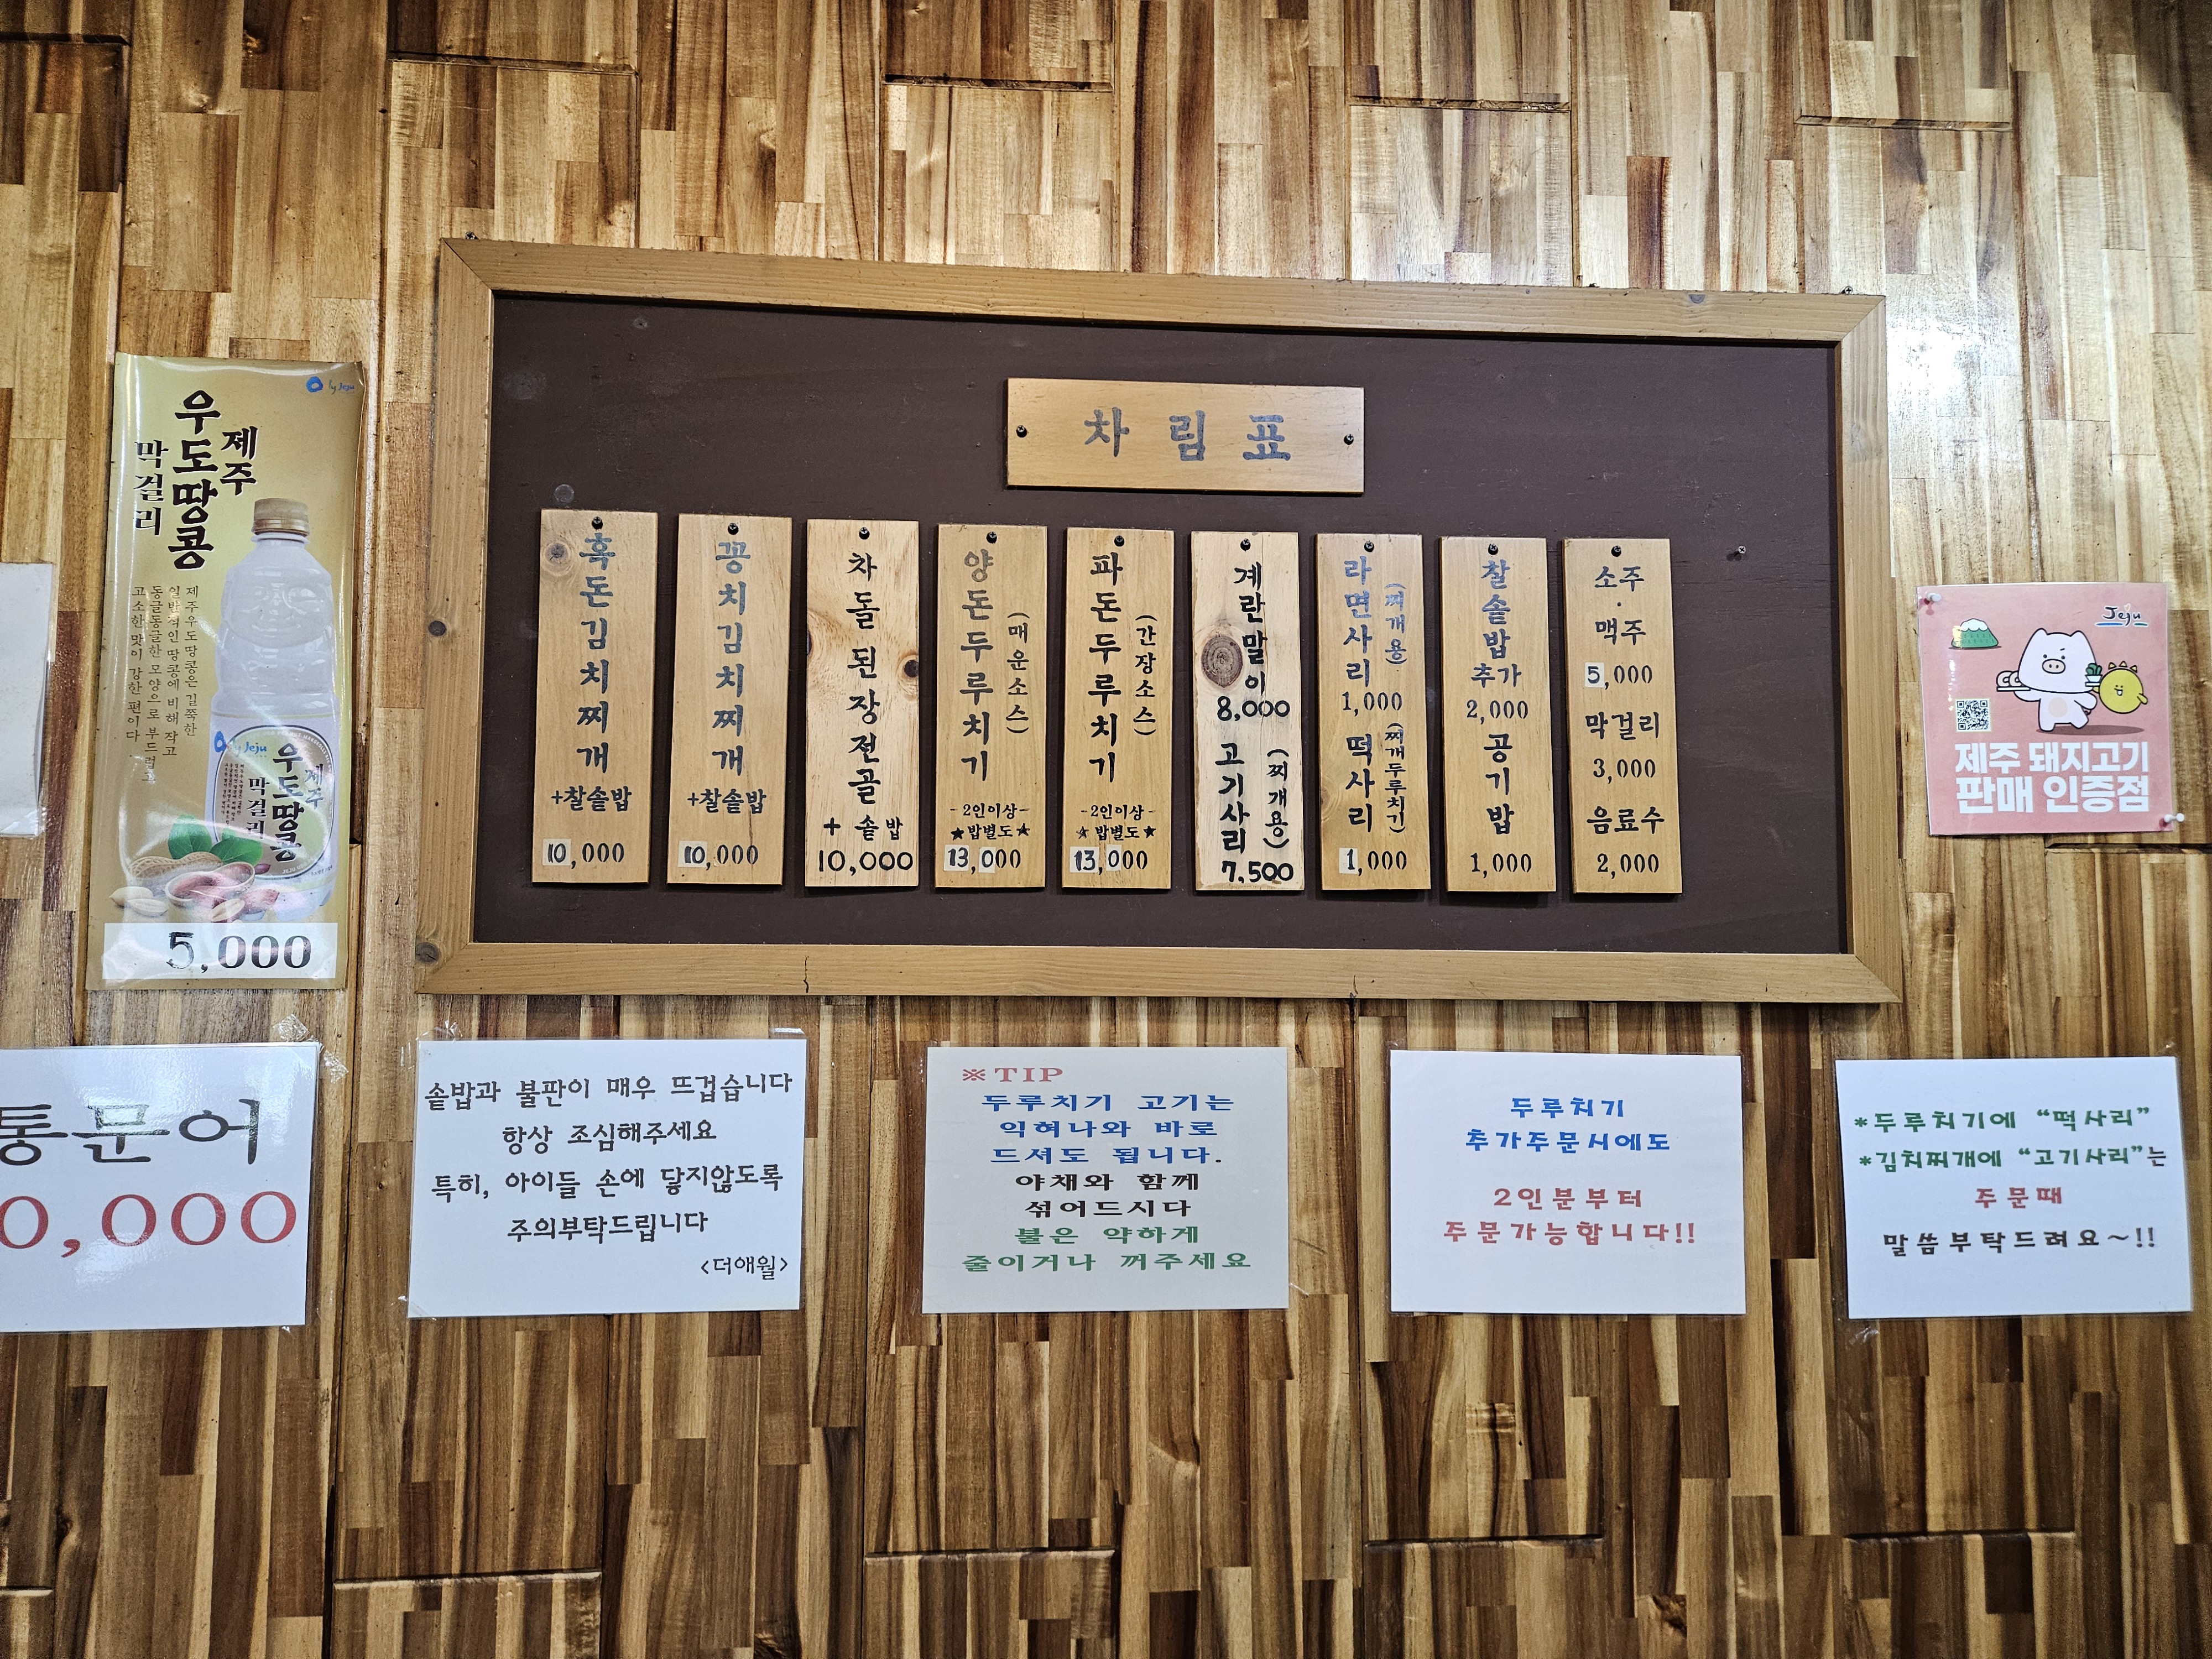 차림표
흑돈김치찌개
+찰솥밥
10,000
꽁치김치찌개
+찰솥밥
10,000
차돌된장전골
+ 솥밥
10,000
양돈두루치기
(매운소스)
-2인이상-
★밥별도★
13,000
파돈두루치기
(간장소스)
-2인이상-
★밥별도★
13,000
계란말이
8,000
고기사리
(찌개용)
7,500
라면사리
(찌개용)
1,000
떡사리
(찌개두루치기)
1,000
찰솥밥
추가
2,000
공기밥
1,000
소주
·
맥주
5,000
막걸리
3,000
음료수
2,000
제주
우도땅콩
막걸리
제주우도땅콩은 길쭉한
일반적인 땅콩에 비해 작고
동글동글한 모양으로 부드럽고
고소한 맛이 강한 편이다
제주
우도땅콩
막걸리
5,000
Jeju
제주 돼지고기
판매 인증점
통문어
0,000
솥밥과 불판이 매우 뜨겁습니다
항상 조심해주세요
특히, 아이들 손에 닿지않도록
주의부탁드립니다
<더애월>
※TIP
두루치기 고기는
익혀나와 바로
드셔도 됩니다.
야채와 함께
섞어드시다
불은 약하게
줄이거나 꺼주세요
두루치기
추가주문시에도
2인분부터
주문가능합니다!!
*두루치기에 “떡사리”
*김치찌개에 “고기사리”는
주문때
말씀부탁드려요~!!